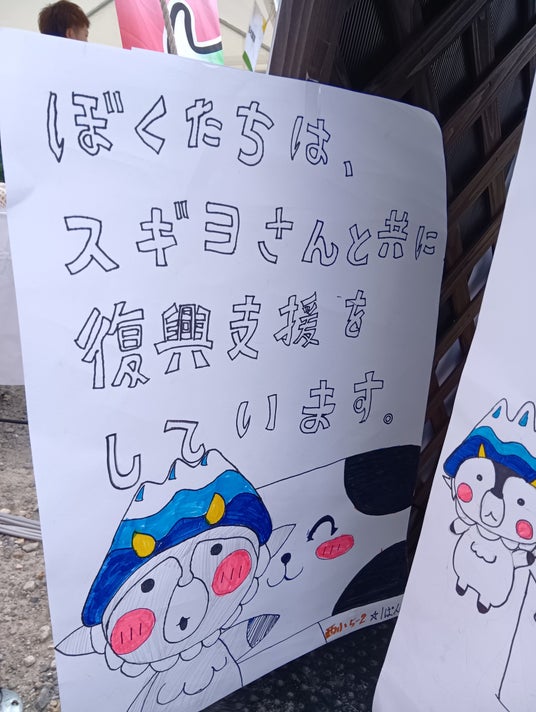 ぼくたちは、
スギヨさんと共に
復興支援を
しています。